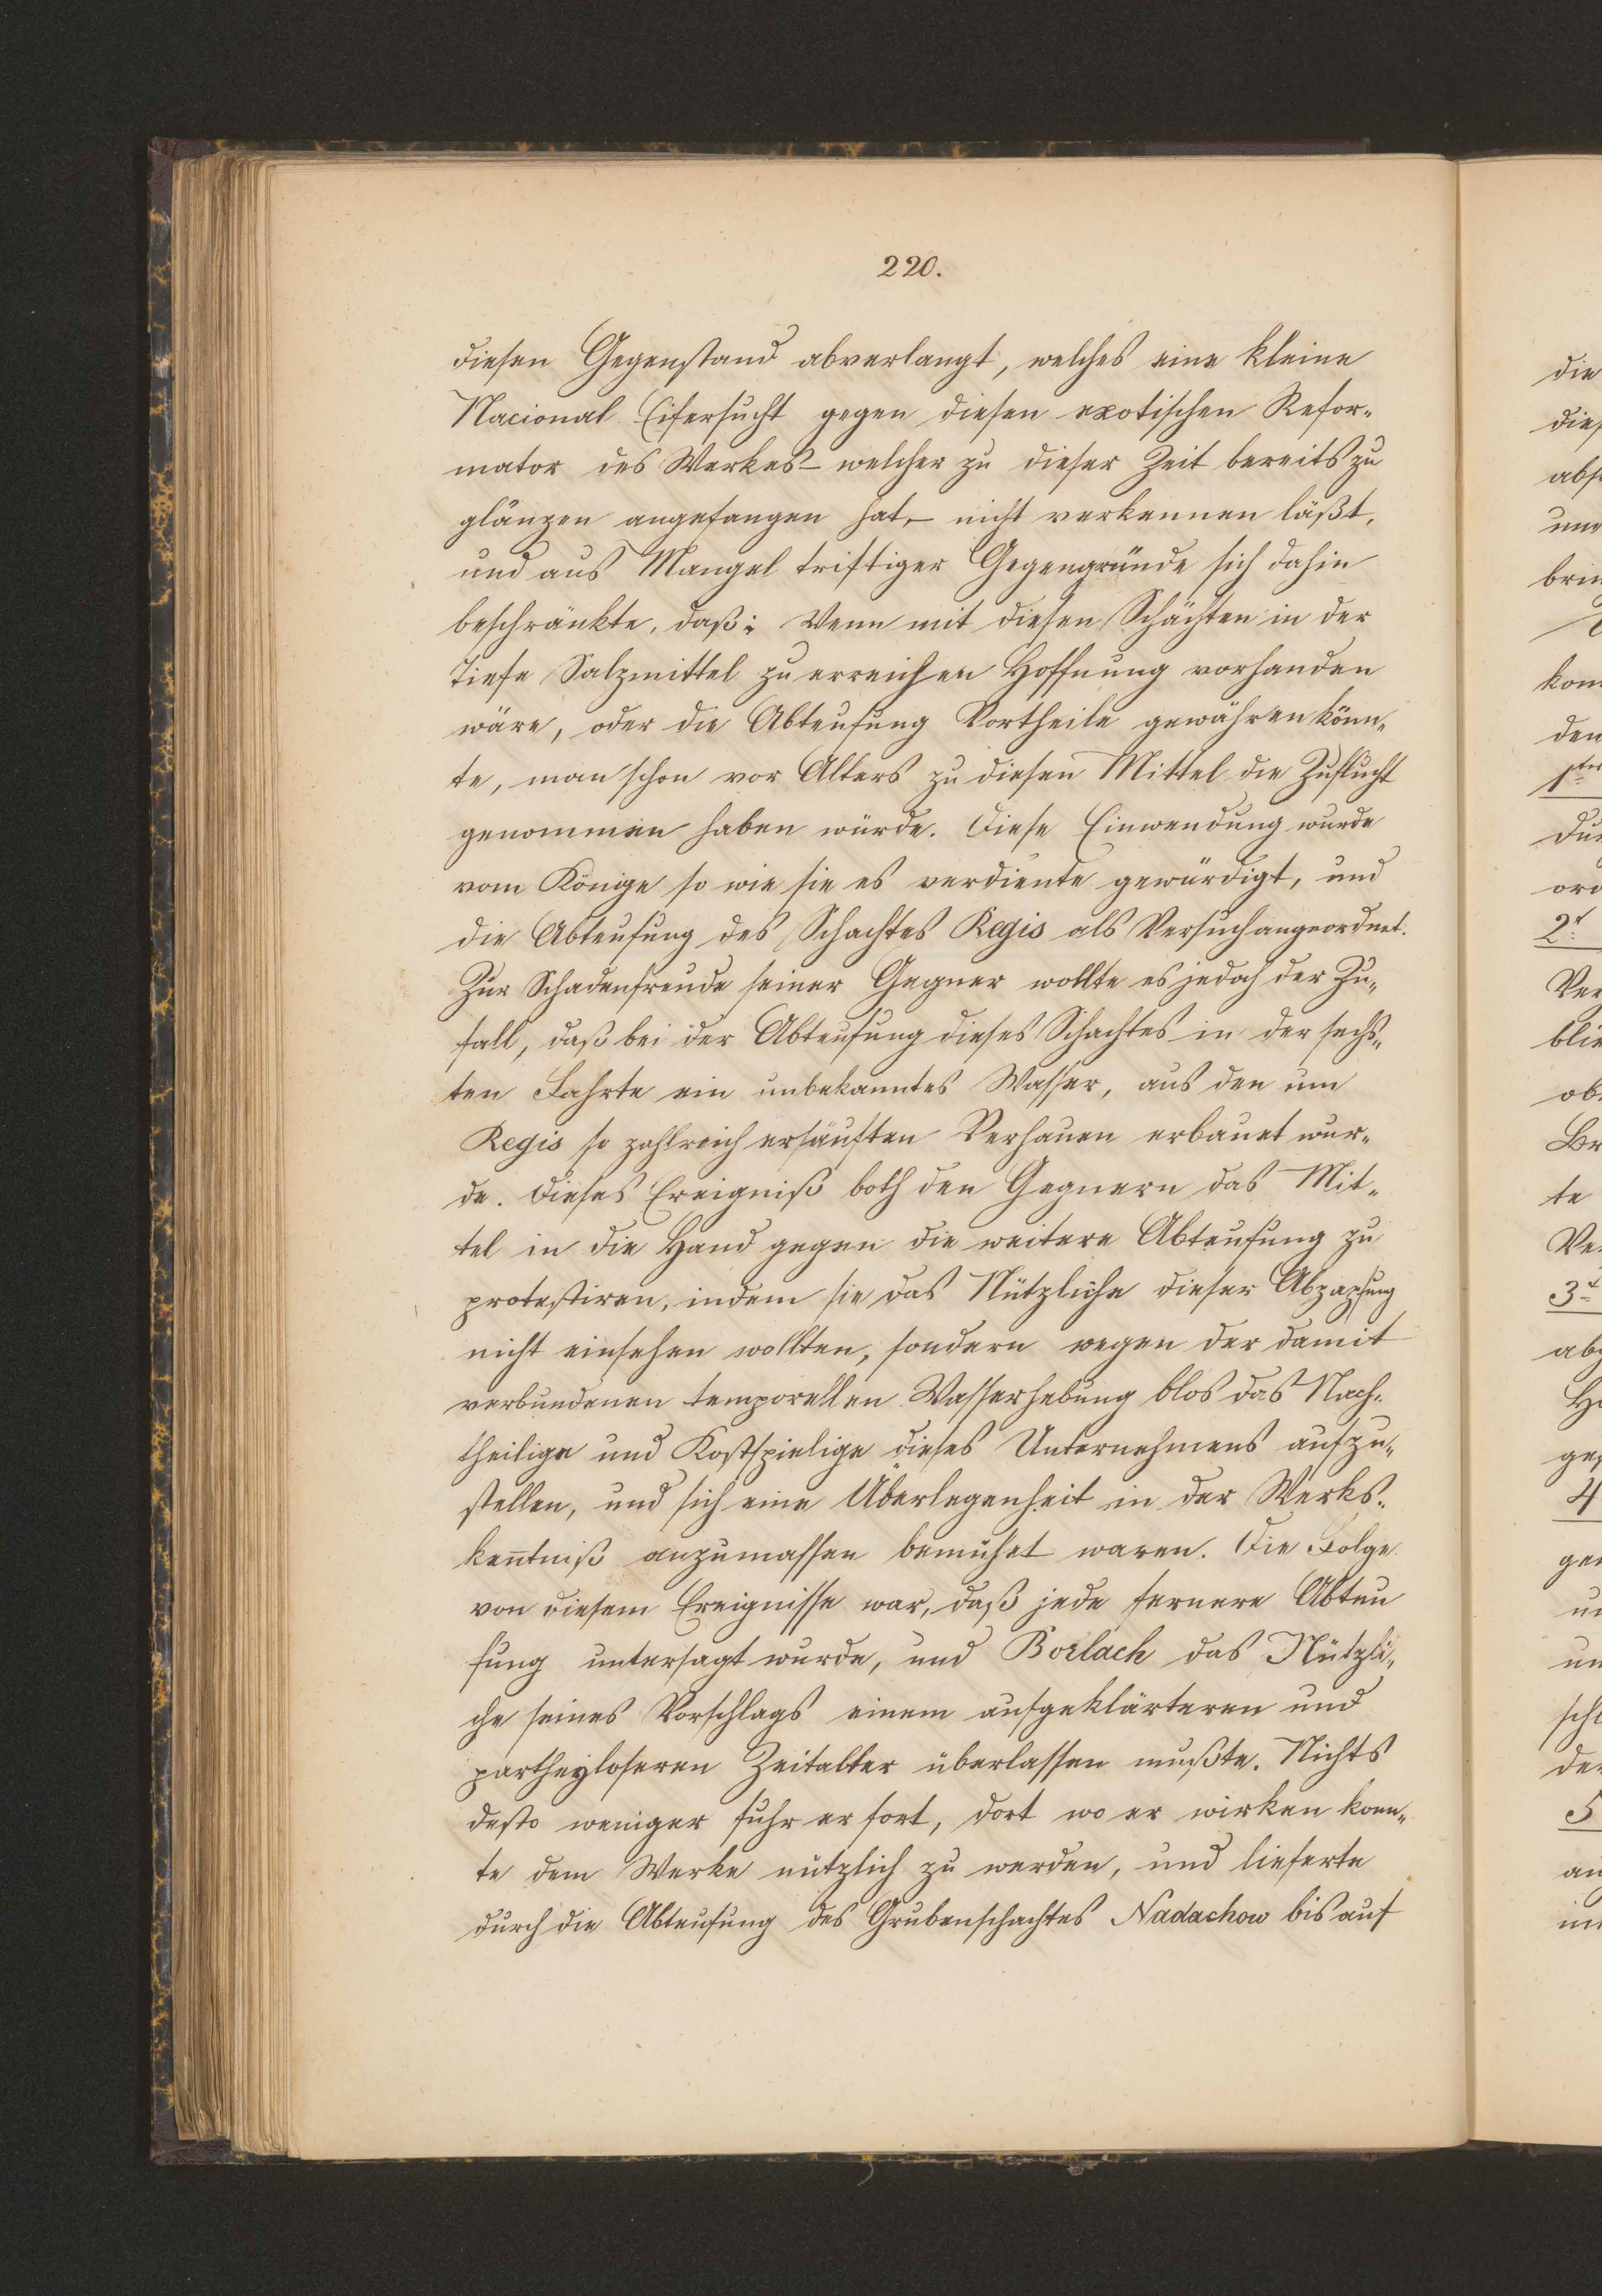 220.
diesen Gegenstand abverlangt, welches eine kleine
Nacional Eifersucht gegen diesen exotischen Refor-
mator des Werkes – welcher zu dieser Zeit bereits zu
glänzen angefangen hat, – nicht verkennen läßt,
und aus Mangel triftiger Gegengründe sich dahin
beschränkte, daß: Wenn mit diesen Schächten in der
Tiefe Salzmittel zu erreichen Hoffnung vorhanden
wäre, oder die Abteufung Vortheile gewähren könn-
te, man schon vor Alters zu diesen Mittel die Zuflucht
genommen haben würde. Diese Einwendung wurde
vom Könige so wie sie es verdiente gewürdigt, und
die Abteufung des Schachtes Regis als Versuch angeordnet.
Zur Schadenfreude seiner Gegner wollte es jedoch der Zu-
fall, daß bei der Abteufung dieses Schachtes in der sechs-
ten Fahrte ein unbekanntes Wasser, aus den um
Regis so zahlreich ersäuften Verhauen erbauet wur-
de. Dieses Ereigniß both den Gegnern das Mit-
tel in die Hand gegen die weitere Abteufung zu
protestiren, indem sie das Nützliche dieser Abzapfung
nicht einsehen wollten, sondern wegen der damit
verbundenen temporellen Wasserhebung blos das Nach-
theilige und Kostspielige dieses Unternehmens aufzu-
stellen, und sich eine Überlegenheit in der Werks-
ken̄tniß anzumassen bemühet waren. Die Folge
von diesem Ereignisse war, daß jede fernere Abteu
fung untersagt wurde, und Borlach das Nützli-
che seines Vorschlags einem aufgeklärteren und
partheyloseren Zeitalter überlassen mußte. Nichts
desto weniger fuhr er fort, dort wo er wirken konn-
te dem Werke nützlich zu werden, und lieferte
durch die Abteufung des Grubenschachtes Nadachow bis auf